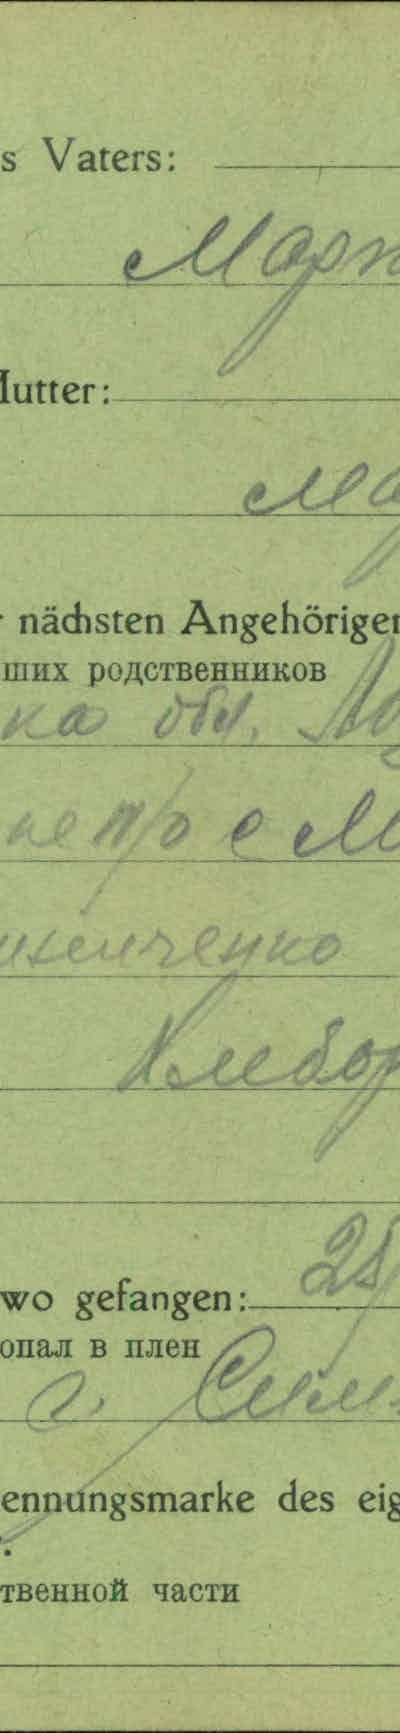 s Vaters:
Марк
Mutter:
Ма
r nächsten Angehörigen
ших родственников
ка обл.
Хлебор
wo gefangen:
опал в плен
25
г. Сим
ennungsmarke des eig
твенной части